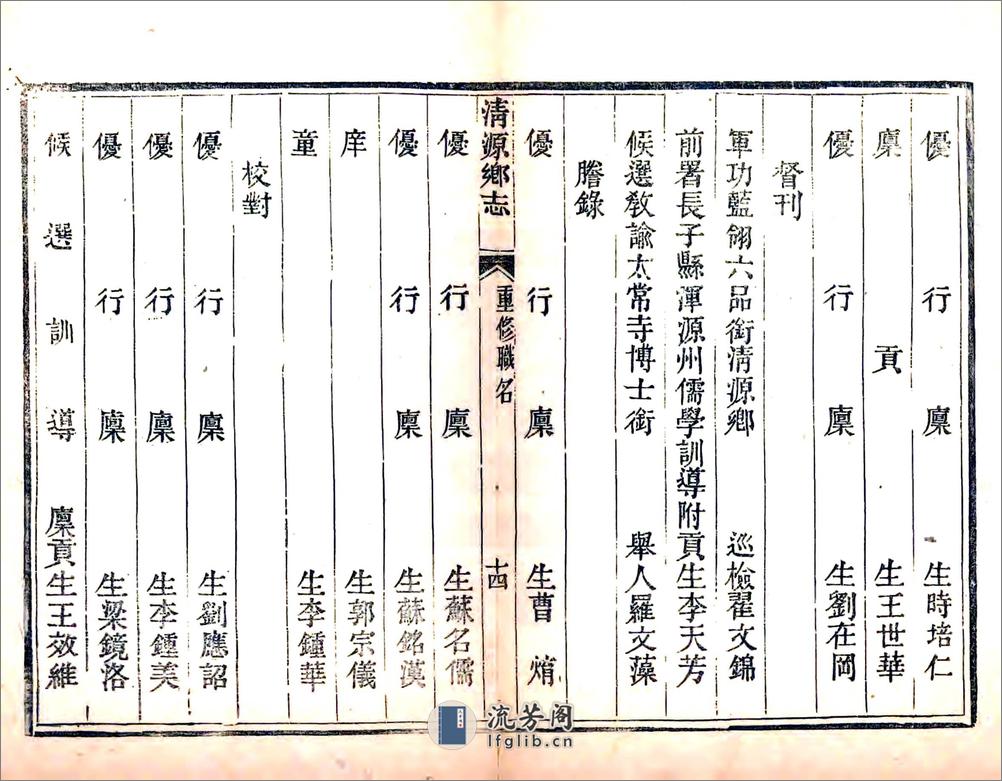 優行廪生時培仁
廪貢生王世華
優行廪生劉在岡
督刊
軍功藍翎六品銜淸源鄉巡檢翟文錦
前署長子縣渾源州儒學訓導附貢生李天芳
候選敎諭太常寺博士銜舉人羅文藻
謄錄
優行廪生曹焴
淸源鄉志
重修職名
十四
優行廪生蘇名儒
優行廪生蘇銘漠
庠生郭宗儀
童生李鍾華
校對
優行廪生劉應詔
優行廪生李鍾美
優行廪生梁鏡洛
候選訓導廪貢生王效維
流芳阁
lfglib.cn